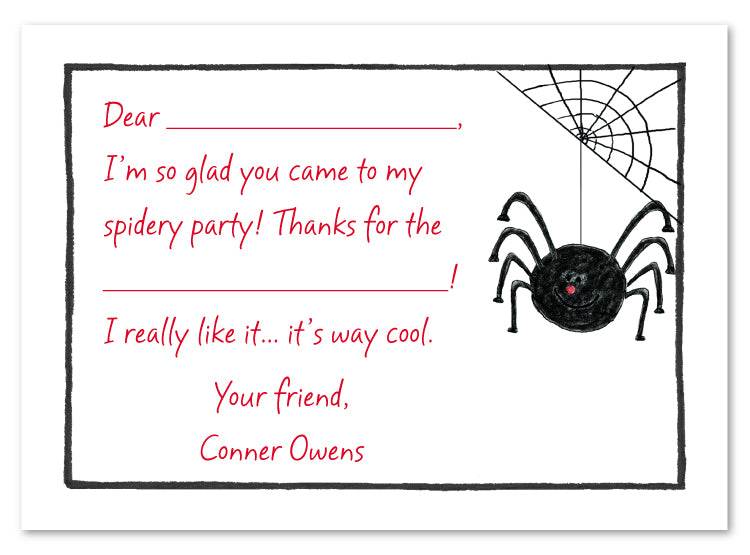 Dear ____________________,
I'm so glad you came to my
spidery party! Thanks for the
________________________!
I really like it... it's way cool.
Your friend,
Conner Owens